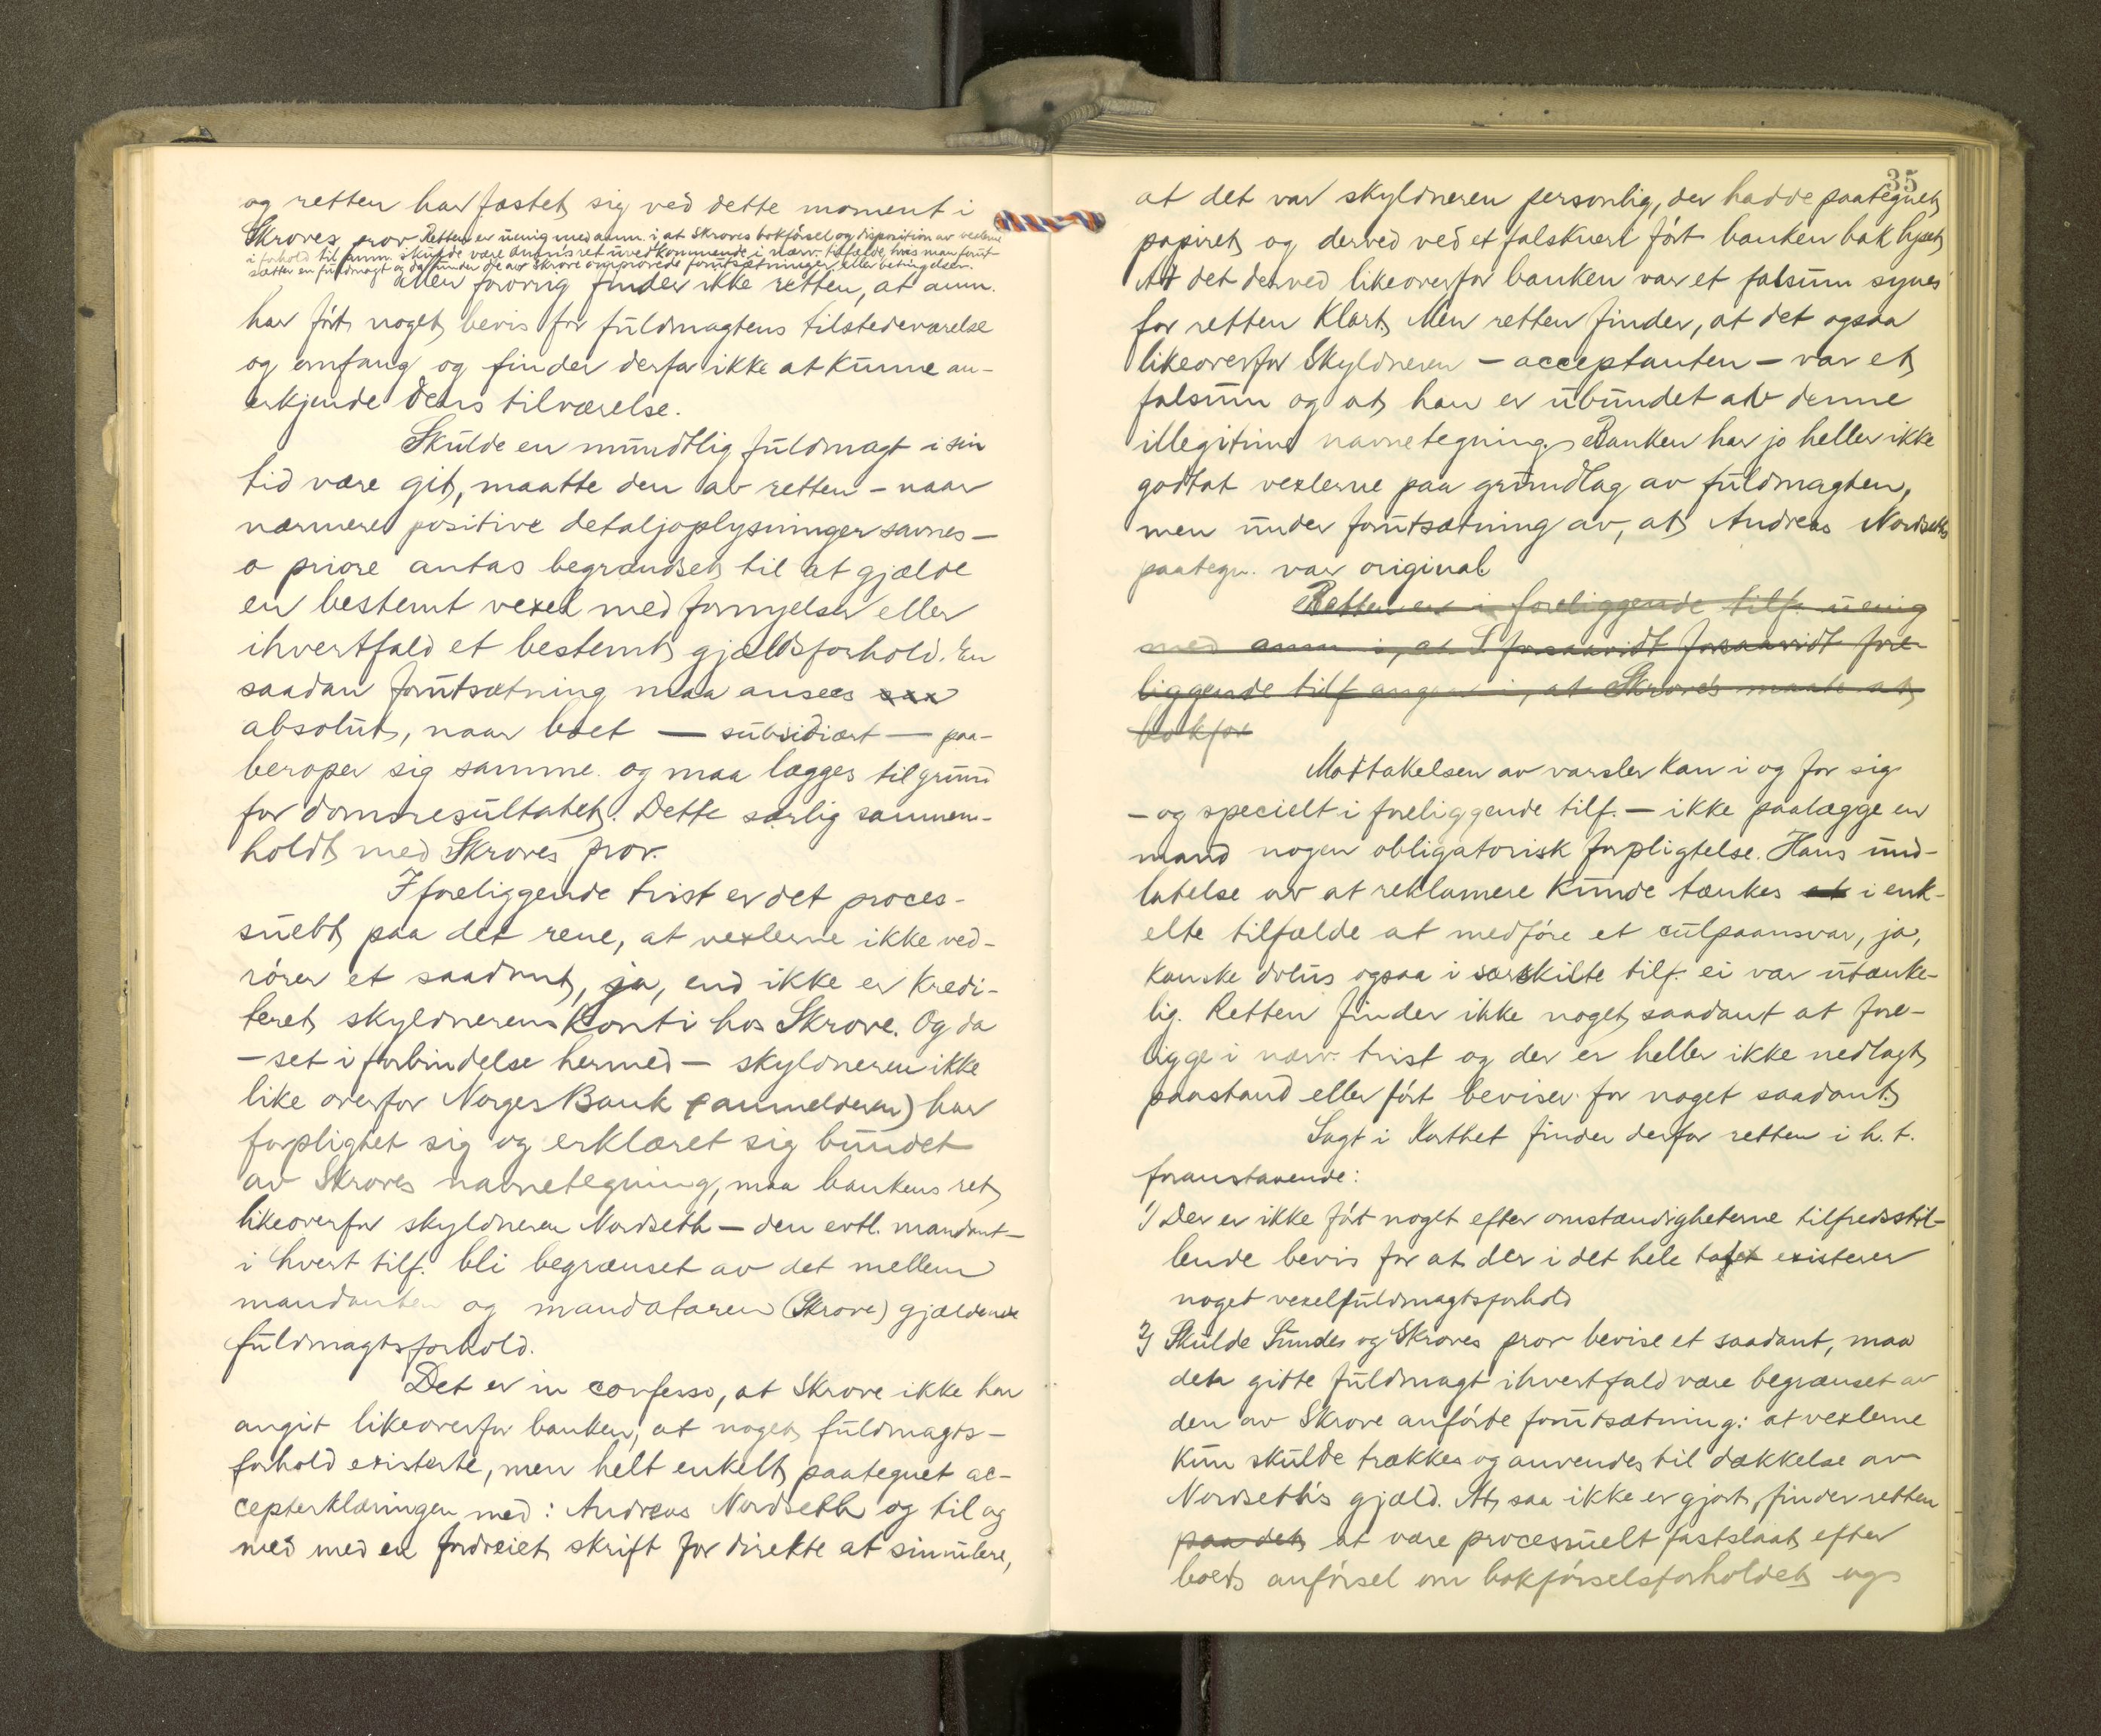 og retten har fæstet sig ved dette moment i
Skroves prov. Retten er uenig med anm. i at Skroves bokførsel og disposition av vexlerne
i forhold til anm. skulde være anm's ret uvedkommende i nærv. tilfælde, hvis man forut-
sætter en fuldmagt og da under de av Skrove oprørede forutsætninger eller betingelser.
Men forøvrig finder ikke retten, at anm.
har ført noget bevis for fuldmagtens tilstedeværelse
og omfang og finder derfor ikke at kunne an-
erkjende dens tilværelse.
Skulde en mundtlig fuldmagt i sin
tid være git, maatte den av retten - naar
nærmere positive detaljoplysninger savnes -
a priore antas begrændset til at gjælde
en bestemt vexel med fornyelser eller
ihvertfald et bestemt gjældsforhold. En
saadan forutsætning maa ansees
absolut, naar boet - subsidiært - paa-
beroper sig samme og maa lægges til grund
for domsresultatet. Dette særlig sammen-
holdt med Skroves prov.
I foreliggende tvist er det proces-
suelt paa det rene, at vexlerne ikke ved-
rører et saadant, ja, end ikke er kredi-
teret skyldnerens konti hos Skrove. Og da
- set i forbindelse hermed - skyldneren ikke
like overfor Norges Bank (anmelderen) har
forpligtet sig og erklæret sig bundet
av Skroves navnetegning, maa bankens ret
likeoverfor skyldneren Nordseth - den evtl. mandant -
i hvert tilf. bli begrænset av det mellem
mandanten og mandataren (Skrove) gjældende
fuldmagtsforhold.
Det er in confesso, at Skrove ikke har
angit likeoverfor banken, at noget fuldmagts-
forhold existerte, men helt enkelt paategnet ac-
cepterklæringen med: Andreas Nordseth og til og
med med en fordreiet skrift for direkte at simulere,
35
at det var skyldneren personlig, der hadde paategnet
papiret og derved ved et falskneri ført banken bak lyset
At det derved likeoverfor banken var et falsum synes
for retten klart. Men retten finder, at det ogsaa
likeoverfor Skyldneren - acceptanten - var et
falsum og at han er ubundet av denne
illegitime navnetegning. Banken har jo heller ikke
godtat vexlerne paa grundlag av fuldmagten,
men under forutsætning av, at Andreas Nordseths
paategn. var original
Retten er i foreliggende tilf. uenig
med anm i, at forsaavidt forsaavidt fore-
liggende tilf i, at Skrove's maate at
bokfør
Mottakelsen av varsler kan i og for sig
- og specielt i foreliggende tilf. - ikke paalægge en
mand nogen obligatorisk forpligtelse. Hans und-
latelse av at reklamere kunde tænkes at i enk-
elte tilfælde at medføre et culpaansvar, ja,
kanske dolus ogsaa i særskilte tilf. ei var utænke-
lig. Retten finder ikke noget saadant at fore-
ligge i nærv. tvist og der er heller ikke nedlagt
paastand eller ført beviser for noget saadant.
Sagt i korthet finder derfor retten i h. t.
foranstaaende:
1) Der er ikke ført noget efter omstændigheterne tilfredsstil-
lende bevis for at der i det hele tat existerer
noget vexelfuldmagtsforhold
2) Skulde Sundes og Skroves prov bevise et saadant, maa
den gitte fuldmagt ihvertfald være begrænset av
den av Skrove anførte forutsætning: at vexlerne
kun skulde trækkes og anvendes til dækkelse av
Nordseth's gjæld. At saa ikke er gjort, finder retten
paa det at være processuelt fastslaat efter
boets anførsel om bokførselsforholdet og